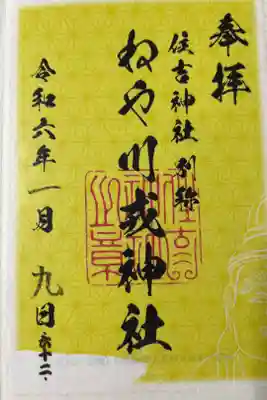 奉拝
住吉神社 別称
ねや川戎神社
令和六年一月九日